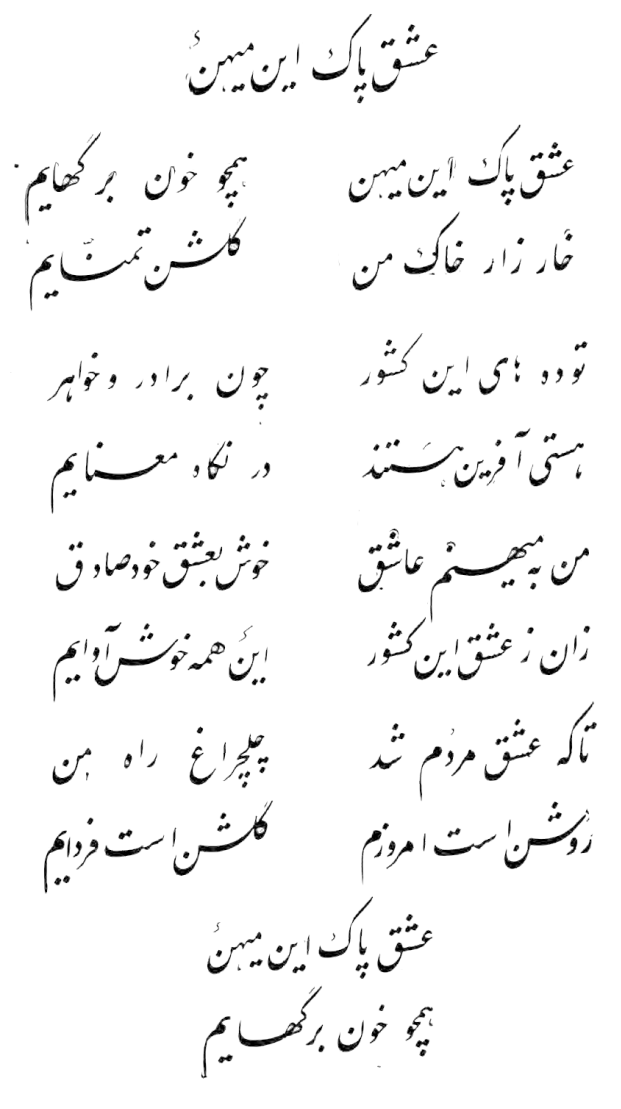 عشق پاک این میهن
عشق پاک این میهن همچو خون برگهایم
خار زار خاک من گلشن تمنّایم
توده های این کشور چون برادر و خواهر
هستی آفرین هستند در نگاه معنایم
من به میهنم عاشق خوش بعشق خود صادق
زان ز عشق این کشور این همه خوش آوایم
تاکه عشق مردم شد چلچراغ راه من
روشن است امروزم گلشن است فردایم
عشق پاک این میهن
همچو خون برگهایم